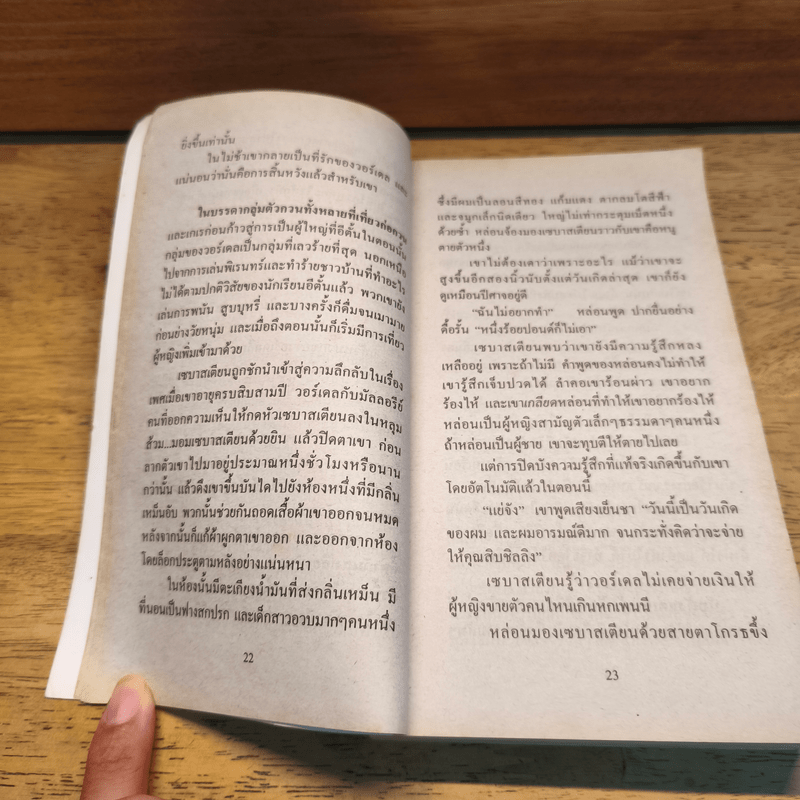 ยิ่งขึ้นเท่านั้น
ในไม่ช้าเขากลายเป็นที่รักของวอร์เดล และ
แน่นอนว่านั่นคือการสิ้นหวังแล้วสำหรับเขา
ในบรรดากลุ่มตัวกวนทั้งหลายที่เที่ยวก่อกวน
และเกเรก่อนก้าวสู่การเป็นผู้ใหญ่ที่อีตั้นในตอนนั้น
กลุ่มของวอร์เดลเป็นกลุ่มที่เลวร้ายที่สุด นอกเหนือ
ไปจากการเล่นพิเรนทร์และทำร้ายชาวบ้านที่ทำอะไร
ไม่ได้ตามปกติวิสัยของนักเรียนอีตั้นแล้ว พวกเขายัง
เล่นการพนัน สูบบุหรี่ และบางครั้งก็ดื่มจนเมามาย
ก่อนย่างวัยหนุ่ม และเมื่อถึงตอนนั้นก็เริ่มมีการเที่ยว
ผู้หญิงเพิ่มเข้ามาด้วย
เซบาสเตียนถูกชักนำเข้าสู่ความลึกลับในเรื่อง
เพศเมื่อเขาอายุครบสิบสามปี วอร์เดลกับมัลลอรีย์
คนที่ออกความเห็นให้กดหัวเซบาสเตียนลงในหลุม
ส้วม...มอมเซบาสเตียนด้วยยิน แล้วปิดตาเขา ก่อน
ลากตัวเขาไปมาอยู่ประมาณหนึ่งชั่วโมงหรือนาน
กว่านั้น แล้วดึงเขาขึ้นบันไดไปยังห้องหนึ่งที่มีกลิ่น
เหม็นอับ พวกนั้นช่วยกันถอดเสื้อผ้าเขาออกจนหมด
หลังจากนั้นก็แก้ผ้าผูกตาเขาออก และออกจากห้อง
โดยล็อกประตูตามหลังอย่างแน่นหนา
ในห้องนั้นมีตะเกียงน้ำมันที่ส่งกลิ่นเหม็น มี
ที่นอนเป็นฟางสกปรก และเด็กสาวอวบมากๆคนหนึ่ง
22
ซึ่งมีผมเป็นลอนสีทอง แก้มแดง ตากลมโตสีฟ้า
และจมูกเล็กนิดเดียว ใหญ่ไม่เท่ากระดุมเม็ดหนึ่ง
ด้วยซ้ำ หล่อนจ้องมองเซบาสเตียนราวกับเขาคือหนู
ตายตัวหนึ่ง
เขาไม่ต้องเดาว่าเพราะอะไร แม้ว่าเขาจะ
สูงขึ้นอีกสองนิ้วนับตั้งแต่วันเกิดล่าสุด เขาก็ยัง
ดูเหมือนปีศาจอยู่ดี
“ฉันไม่อยากทำ” หล่อนพูด ปากยื่นอย่าง
ดื้อรั้น “หนึ่งร้อยปอนด์ก็ไม่เอา”
เซบาสเตียนพบว่าเขายังมีความรู้สึกหลง
เหลืออยู่ เพราะถ้าไม่มี คำพูดของหล่อนคงไม่ทำให้
เขารู้สึกเจ็บปวดได้ ลำคอเขาร้อนผ่าว เขาอยาก
ร้องไห้ และเขาเกลียดหล่อนที่ทำให้เขาอยากร้องไห้
หล่อนเป็นผู้หญิงสามัญตัวเล็กๆธรรมดาๆคนหนึ่ง
ถ้าหล่อนเป็นผู้ชาย เขาจะทุบตีให้ตายไปเลย
แต่การปิดบังความรู้สึกที่แท้จริงเกิดขึ้นกับเขา
โดยอัตโนมัติแล้วในตอนนี้
“แย่จัง” เขาพูดเสียงเย็นชา “วันนี้เป็นวันเกิด
ของผม และผมอารมณ์ดีมาก จนกระทั่งคิดว่าจะจ่าย
ให้คุณสิบชิลลิง”
เซบาสเตียนรู้ว่าวอร์เดลไม่เคยจ่ายเงินให้
ผู้หญิงขายตัวคนไหนเกินหกเพนนี
หล่อนมองเซบาสเตียนด้วยสายตาโกรธขึ้ง
23